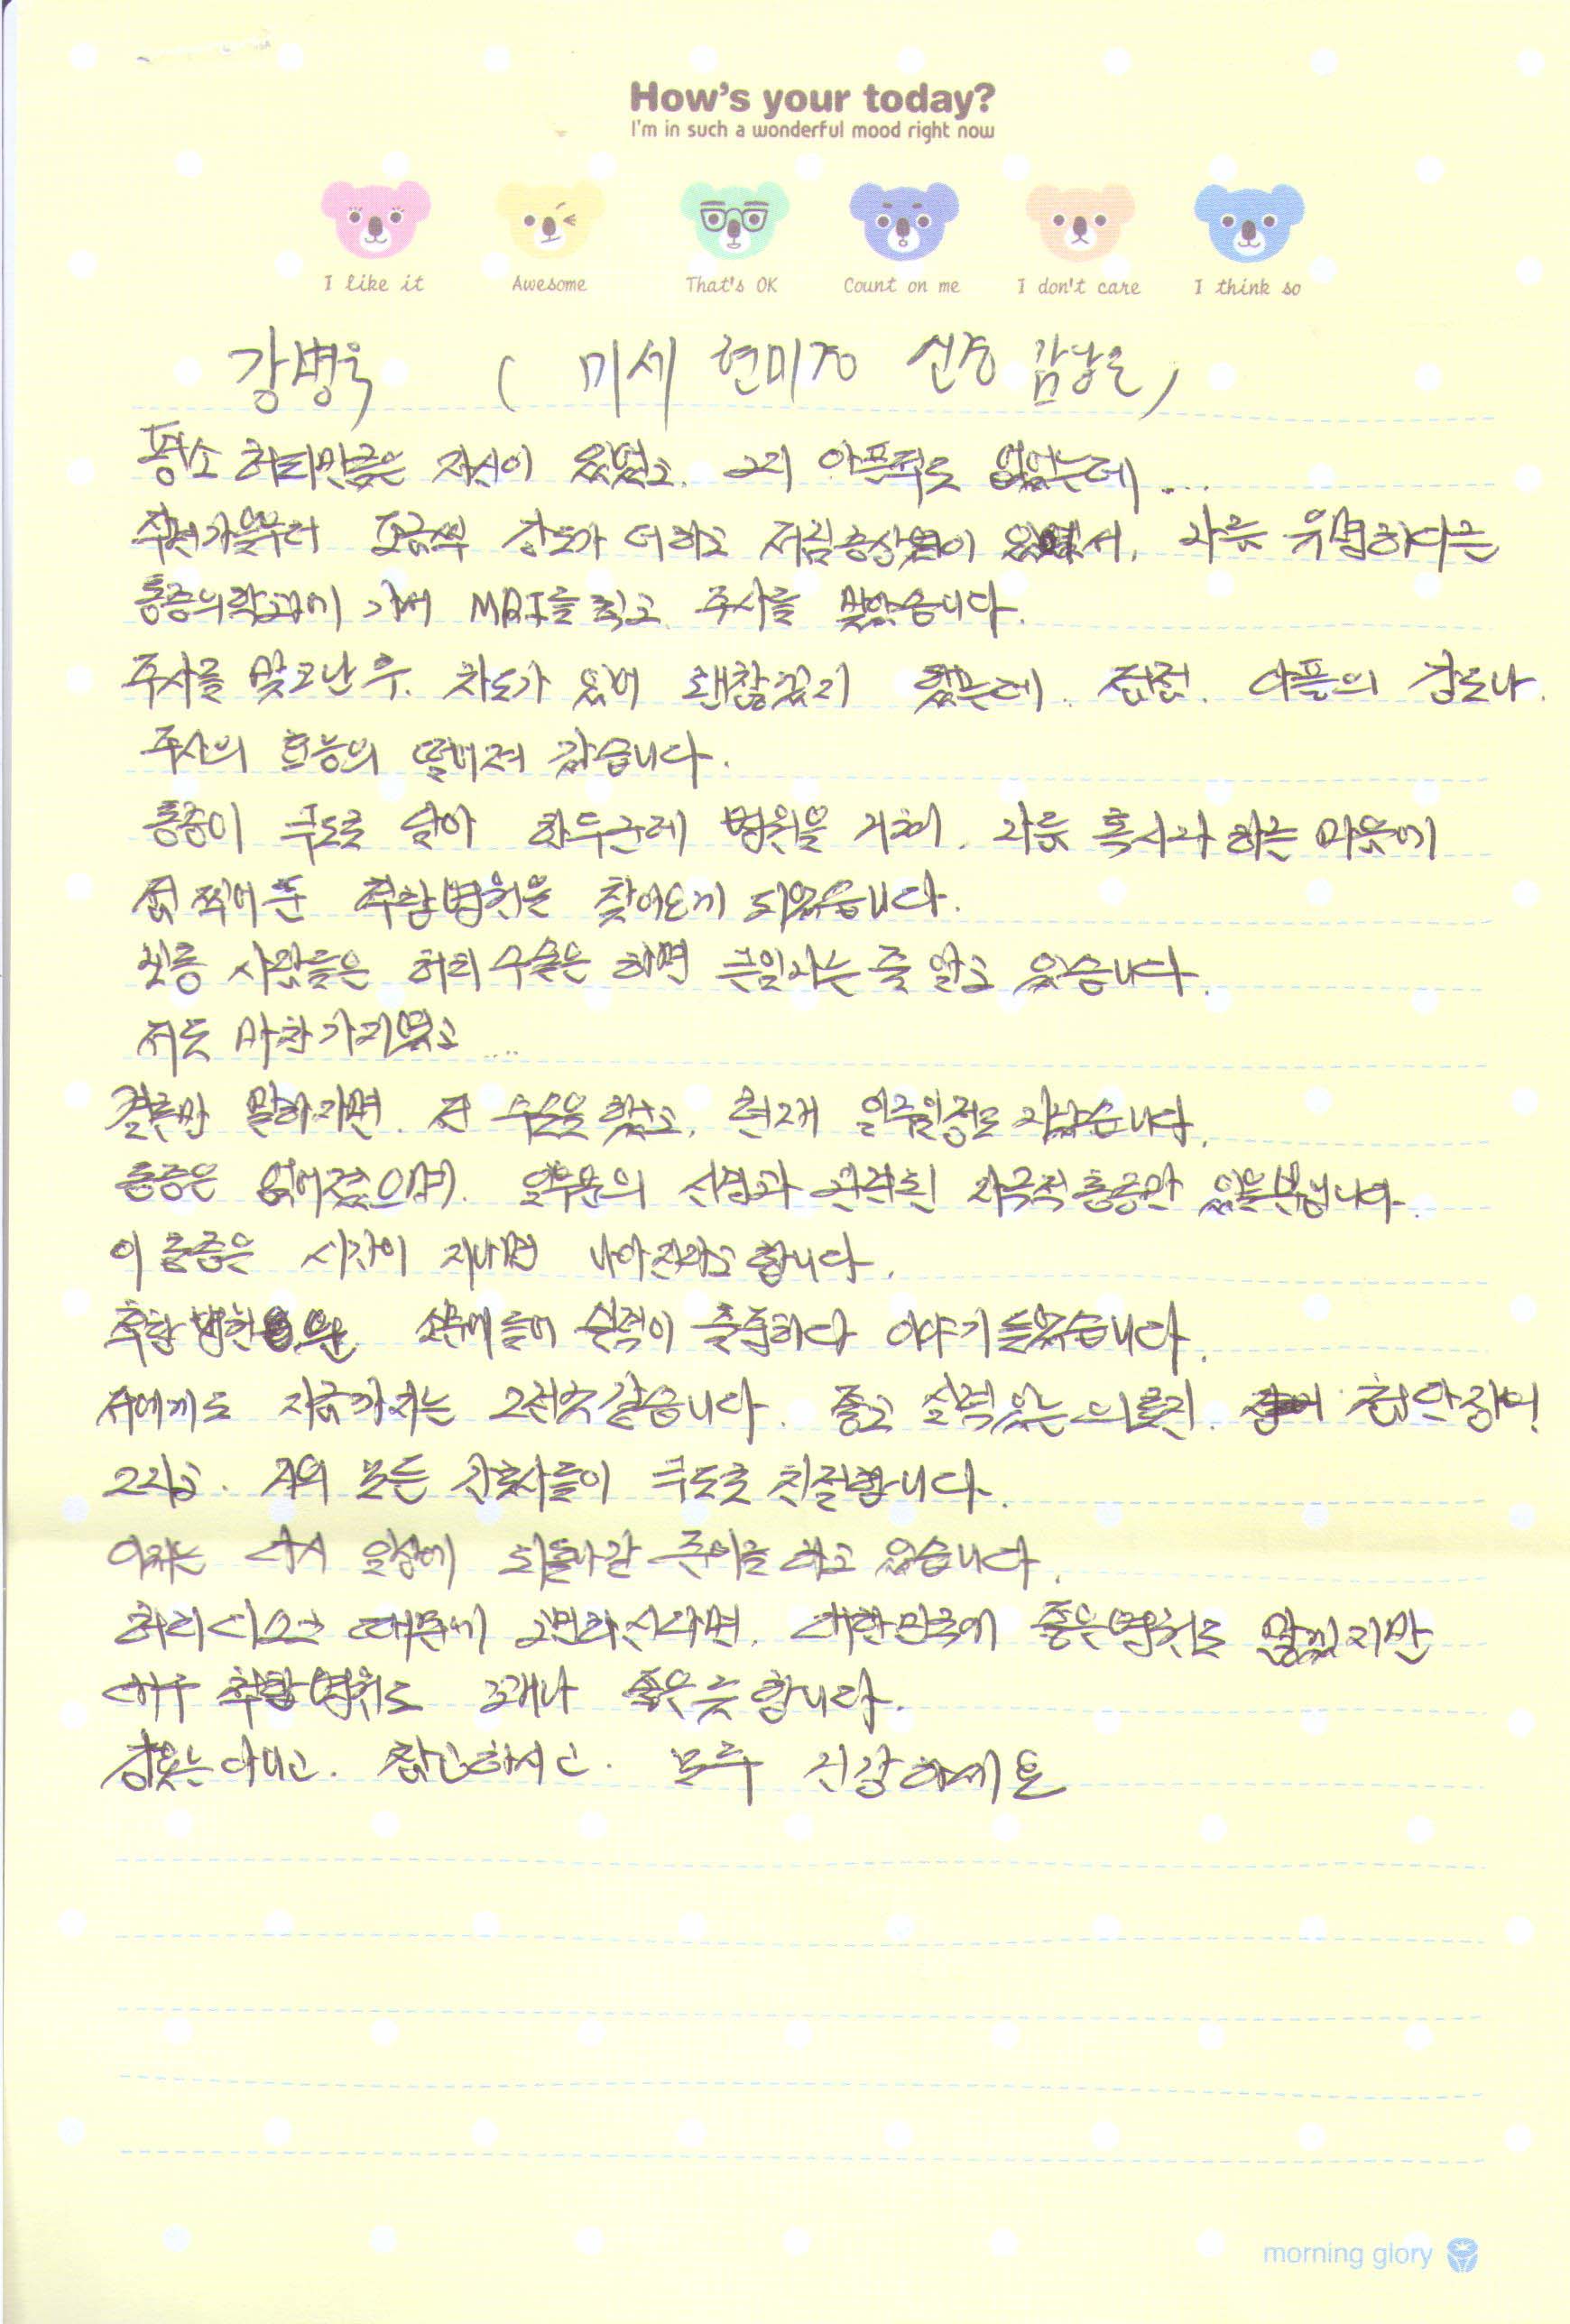 How's your today?
I'm in such a wonderful mood right now
I like it Awesome That's OK Count on me I don't care I think so
강병욱 ( 미세 현미경 신경 감압술 )
평소 허리만큼은 자신이 있었고. 그리 아픈적도 없었는데 ...
작년가을부터 조금씩 강도가 더하고 저림증상이 있어서, 나름 유명하다는
통증의학과에 가서 MRI를 찍고 주사를 맞았습니다.
주사를 맞고난 후. 차도가 있어 괜찮겠지 했는데. 점점. 아픔의 강도나.
주사의 효능의 떨어져 갔습니다.
통증이 극도로 달아 한두군데 병원을 거쳐, 나름 혹시나 하는 마음에
점 찍어 둔 척탑병원을 찾아오게 되었습니다.
보통 사람들은 허리 수술은 하면 큰일나는 줄 알고 있습니다.
저도 마찬가지였고 ....
결론만 말하자면. 전 수술을 했고, 현재 일주일정도 지났습니다.
통증은 없어졌으며. 일부분의 신경과 관련된 자극적 통증만 있을뿐입니다.
이 통증은 시간이 지나면 나아진다고 합니다.
척탑병원은 소문에 들어 실력이 출중하다 이야기 들었습니다.
저에게도 지금까지는 그런것 같습니다. 좋고 실력있는 의료진.
그리고. 모든 간호사들이 극도로 친절합니다.
이제는 다시 일상에 되돌아갈 준비를 하고 있습니다.
허리디스크 때문에 고민하신다면, 대한민국에 좋은병원도 많겠지만
대구 척탑병원도 꽤나 좋은듯 합니다.
참는다 참고하시고. 모두 건강하세요
morning glory